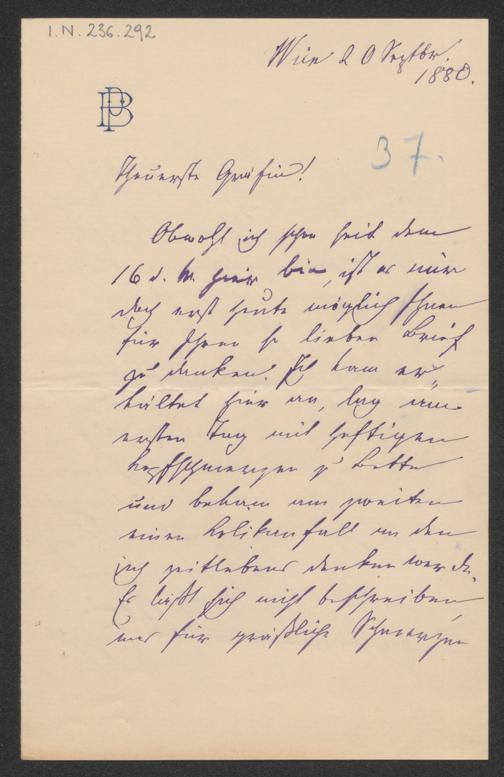 I.N. 236.292
Wien 20 Septbr.
1880.
PB
37.
Theuerste Gräfin!
Obwohl ich schon seit dem
16 d. M. hier bin, ist es mir
doch erst heute möglich Ihnen
für Ihren so lieben Brief
zu danken. Ich kam er-
kältet hier an, lag am
ersten Tag mit heftigen
Kopfschmerzen zu Bette
und bekam am zweiten
einen Kolikanfall an den
ich zeitlebens denken werde.
Es läßt sich nicht beschreiben
was für gräßliche Schmerzen